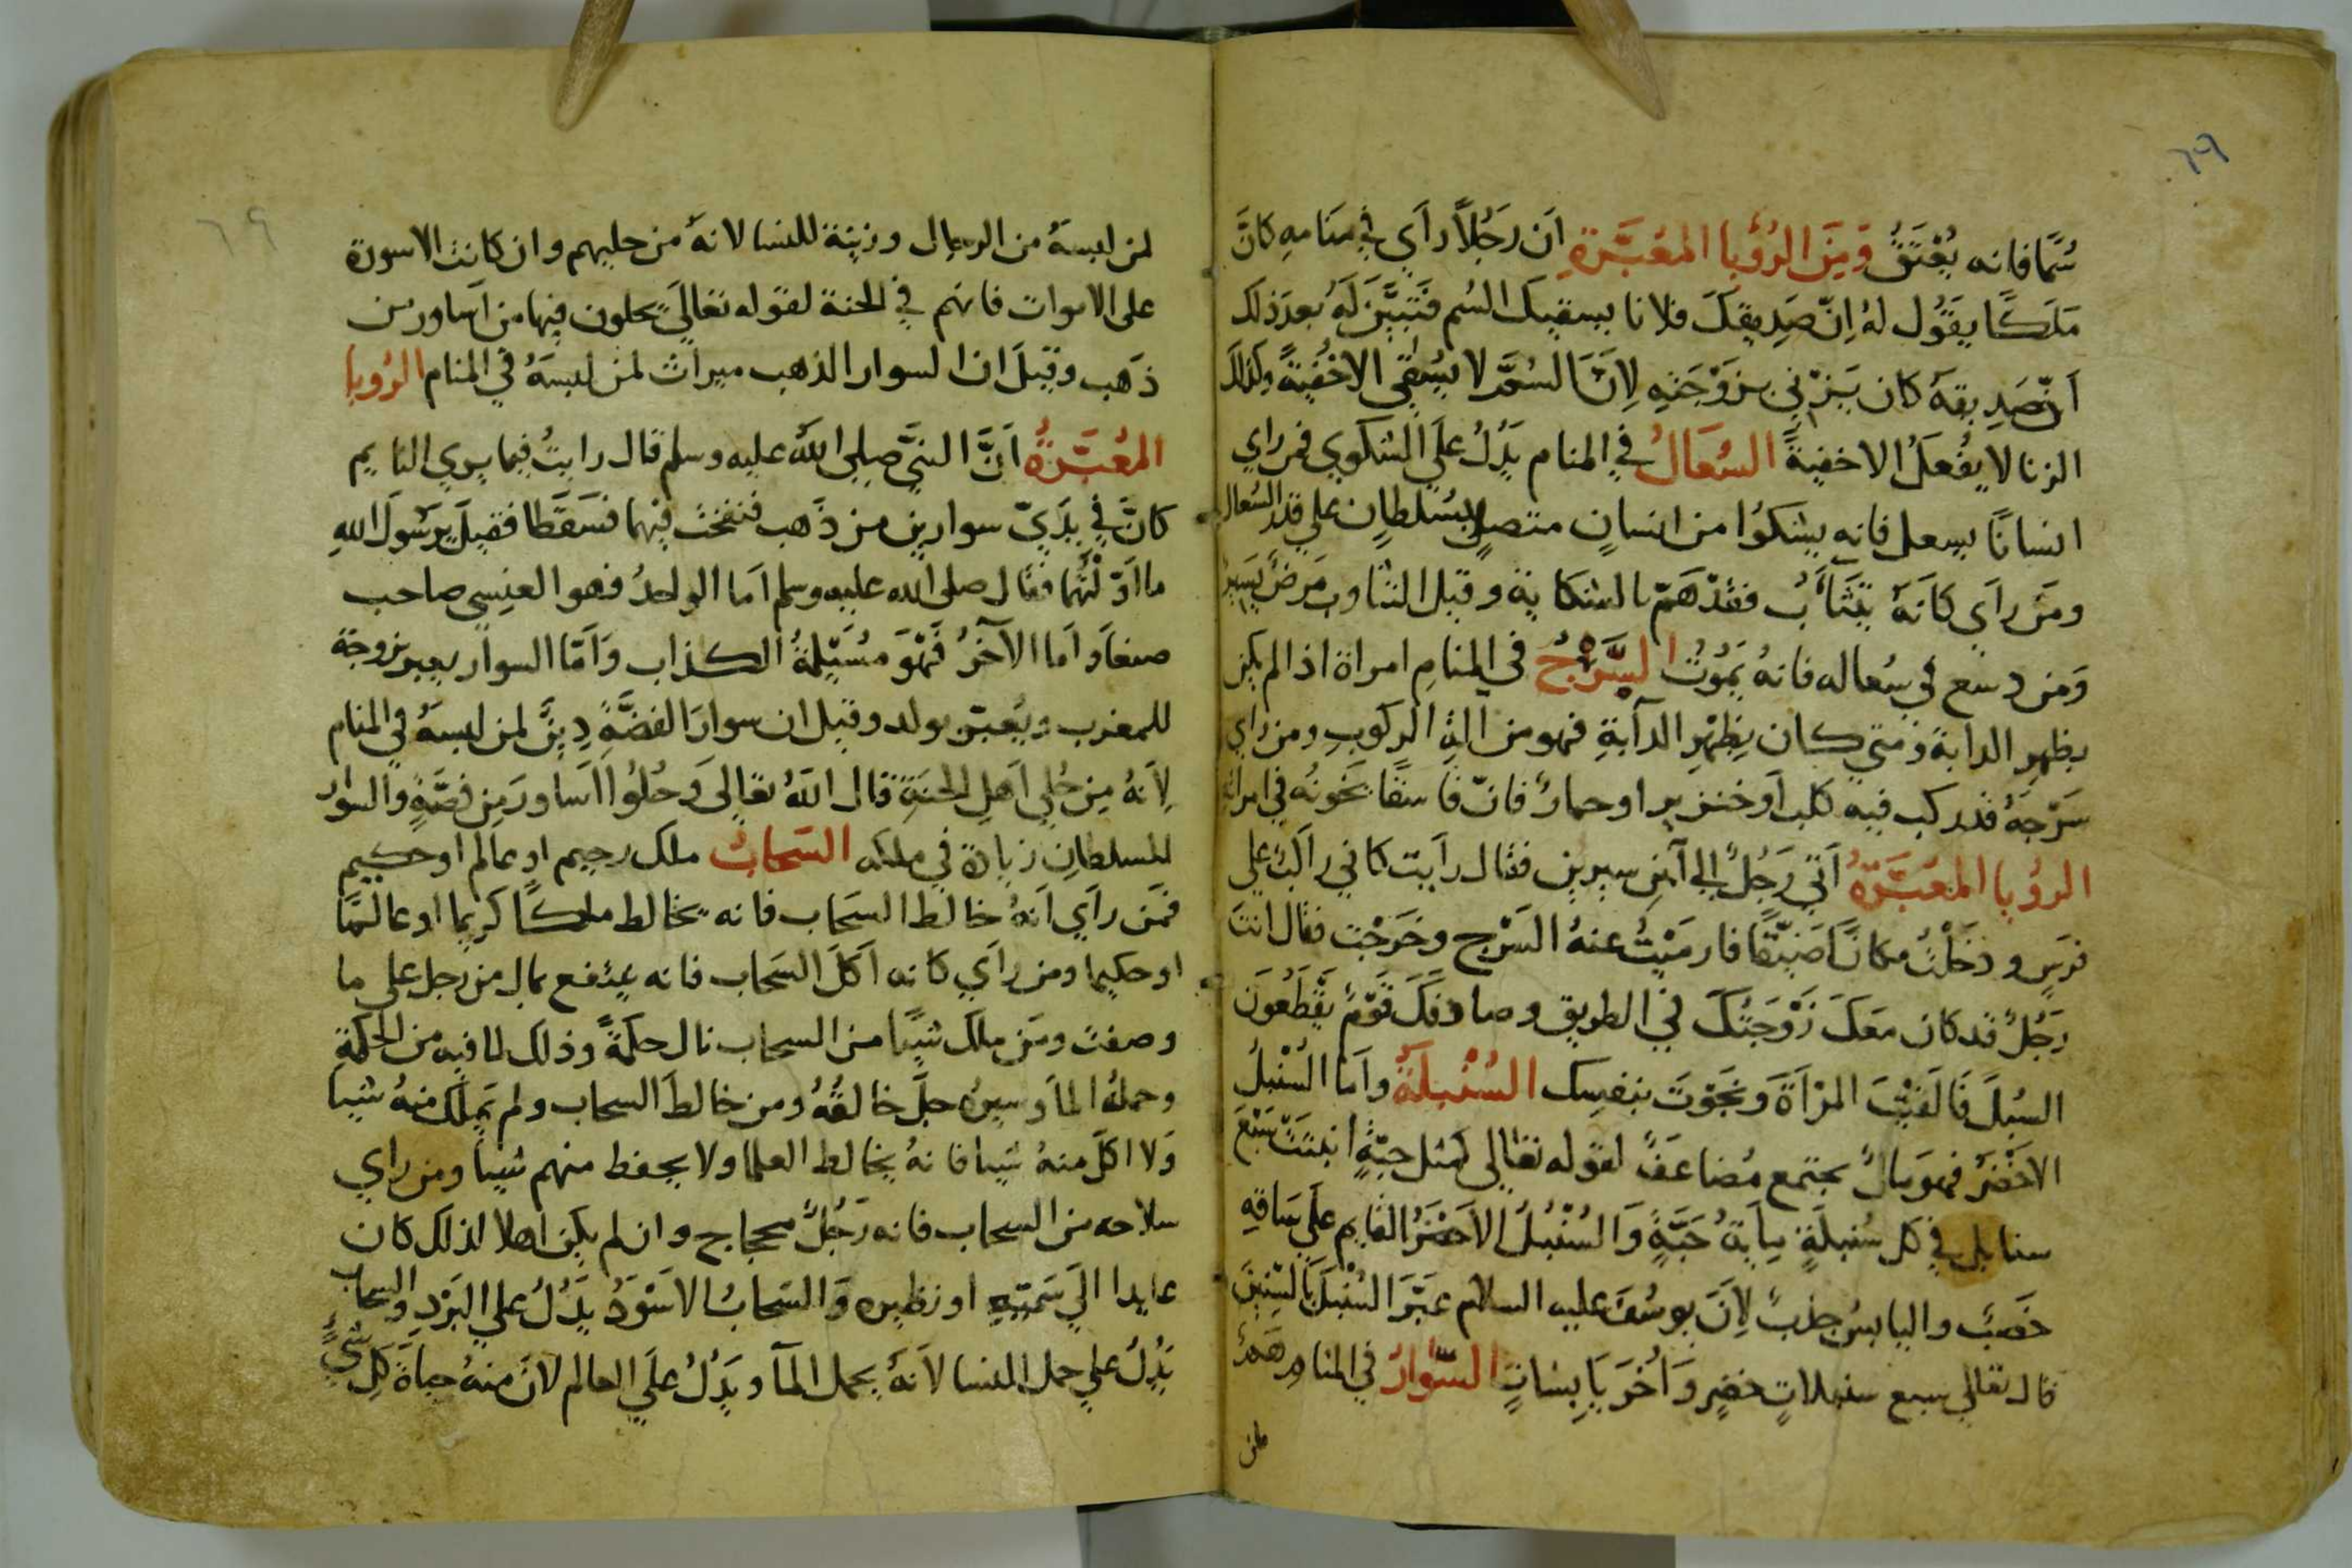 ٦٩
سُمًّا فانه يُعْتَقُ وَمِنَ الرُؤيا المعَبَّرَةِ اَن رَجُلاً رَاَي في مَنَامهِ كانَّ
مَلَكًا يقَوُل لهُ اِنّ صَدِيقكَ فلانا يسقيك السُم فَتَبيَّنَ لَهُ بَعدَ ذلك
اَنّ صَدِيقهُ كان يَزْني بزوْجَتِهِ لاِنَّ السُمَّ لا يُسْقَي الاخُفْيةً وكذلك
الزنا لا يفُعَلُ الاخفيةً السُعَالُ في المنام يَدُلُ علَي الشكوي فمن راي
انسانًا يسعل فانه يشكوُا من انسانٍ متصلٍ بسُلطانٍ علي قدر السُعال
ومَن رَاَي كاَنهُ يتثَاَبُ فقدْ هَمّ بالشكاية وقيل التثاوب مَرضٌ يَسير
وَمَن دسَع في سُعاله فانهُ يَمُوتُ السَّرْجُ في المنامِ امراة اذا لم يكن
بظهرِ الدابة ومتي كان بِظهْرِ الدآبةِ فهو من اَلةِ الركوُبِ ومن راي
سَرْجهُ قد ركب فيه كلب اَو خنزير او حمارٌ فانّ فاسقًا يَخونُه في امراته
الرؤيا المعَبَّرَةُ اَتي رَجُلٌ الي اَبن سيرين فقال رَاَيت كاني راَكبٌ علي
فرَسٍ ودخَلْتُ مكانًا ضَيّقًا فارمَيْتُ عنهُ السَرْج وخَرَجْت فقال انتَ
رَجُلٌ قد كان معَكَ زَوْجَتُكَ في الطريق وصادفَكَ قَوْمٌ يَقْطَعُونَ
السُبلَ فَالقَيْتَ المرْاَةَ وَنجَوْتَ بنفسِك السُنْبلَةُ واَمّا السُنْبلُ
الاخَضَرُ فهوَ مالٌ يجتمع مُضاعَفٌ لقوله تعَالي كمثل حبّةٍ انبتَتْ سَبْعَ
سنابل في كل سُنبلَةٍ مِايَةُ حَبَّةٍ وَالسُنْبُلُ الاَخضَرُ القايم علَي سَاقهِ
خصَبٌ واليابسُ جدْبٌ لاِنَ يوسُفَ عليه السلام عَبّرَ السُنْبلَ بَالسنينَ
قال تعَالي سبع سنبلاتٍ خضرٍ وَاُخَرَ يَابِسَاتٍ السّوارُ في المنام هَمٌ
لمن
٦٩
لمن لبسَهُ من الرجال وزينة للنسا لانهُ من حليهم وان كانت الاسورة
علي الاموات فانهم في الجنة لقوله تعَاليَ يحلون فيها من اَساور من
ذَهب وقيلَ ان السوار الذهب ميراث لمن لبسَهُ في المنام الرُويا
المعُبَّرَةُ اَنَّ النبيَّ صلي اللهُ عليه وسلم قال رايتُ فيما يري النايم
كانَّ في يدَيّ سوارين من ذَهب فنفخت فيهما فَسَقطا فقيلَ يرَسُولَ اللهِ
ما اَوّلْتَهُما فقال صلي الله عليه وسلم اَما الواحدُ فهو العنسي صاحب
صنعَا واَما الاَخرُ فَهْوَ مُسَيْلمةُ الكذاب وَاَمّا السوار يعبر بزوجة
للمعزب ويُعبّر بولد وقيل ان سوار الفضَّةِ دِينٌ لمن لبسَهُ في المنام
لاِنهُ مِن حُلي اَهلِ الجنةِ قال اللهُ تعَالي وَحُلوُا اَسَاورَ مِن فضَّةٍ والسوار
للسلطانِ زيادة في ملكه السَحابُ ملك رحيم او عالم او حكيم
فمَن رآي اَنهُ خالط السحَاب فانه يخالط ملكًا كريمًا او عالمًا
او حكيما ومن راَي كانه اَكلَ السَحاب فانه ينتفع بمالٍ من رجل علي ما
وصفت ومَن ملَكَ شيًا من السحاب نال حكمةً وذلك لما فيه من الحكمةِ
وحملهُ الماَ وسيرهُ جلَّ خالقهُ ومن خالطَ السحاب ولم يَملك منهُ شيا
وَلا اكلَ منهُ شيا فانهُ يخالط العلما ولا يحفظ منهم شيا ومن راي
سلاحه من السحاب فانه رَجُلٌ محجاج وان لم يكن اهلا لذلك كان
عايدا الَي سَميّهِ او نظيره وَالسَحابُ الاسْوَدُ يَدُلُ علي البَرْدِ والسحاب
يَدُلُ علي حمل النسا لاَنهُ يحمل الماَ ويَدُلُ علَي العالم لاَن منهُ حياةَ كلِ شيٍ